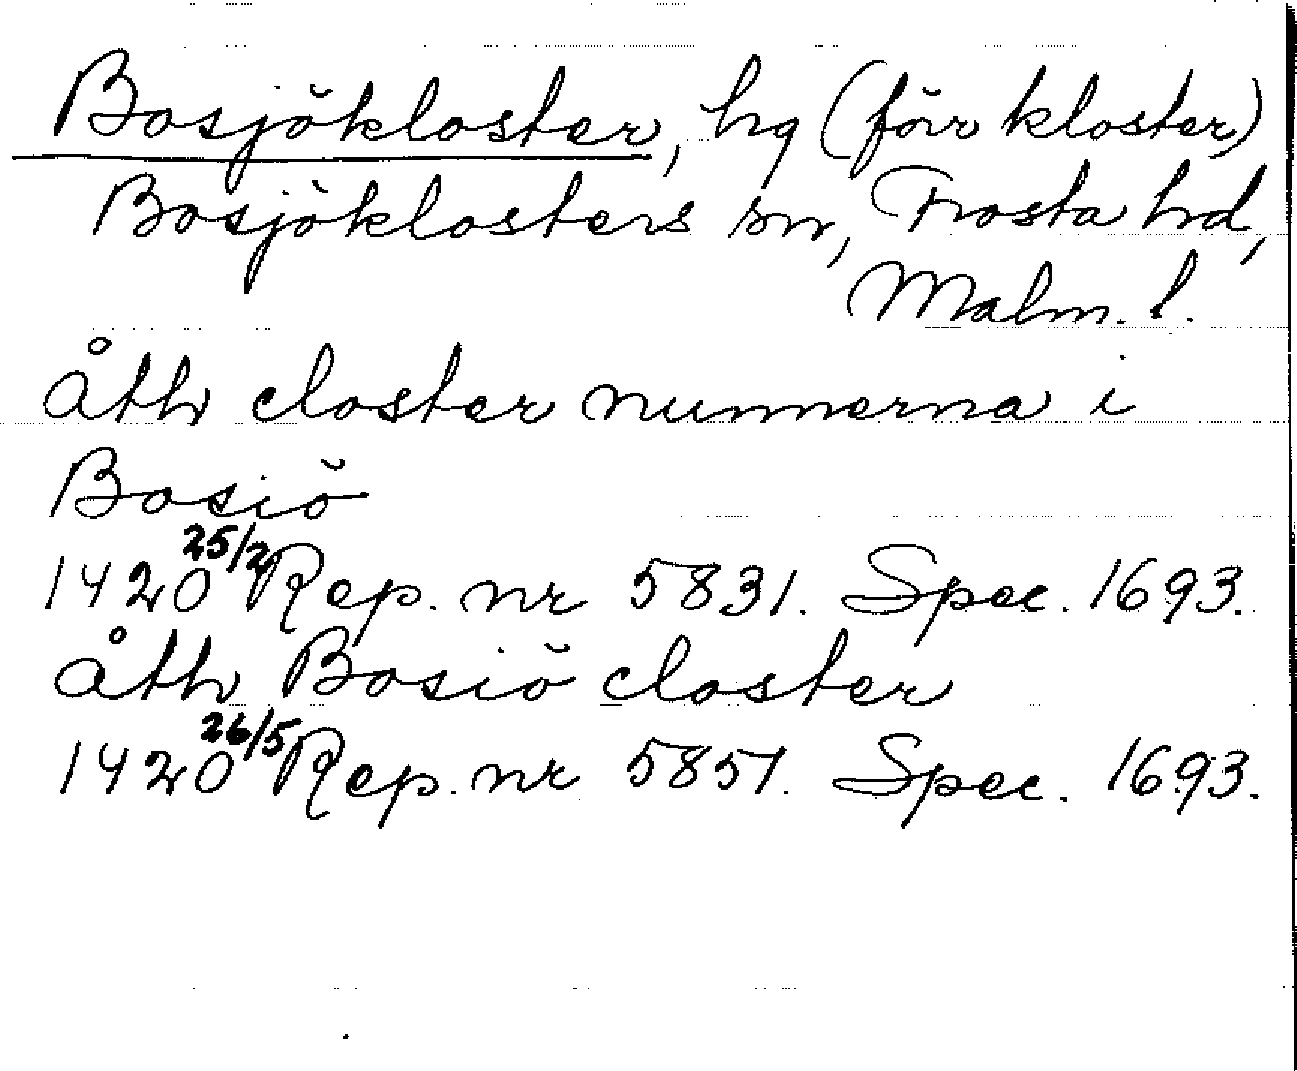 Bosjökloster, hg (förr kloster)
Bosjöklosters sn, Frosta hd,
Malm. l.
åth closter nunnerna i
Bosiö
1420 25/2 Rep. nr 5831. Spec. 1693.
åth Bosiö closter
1420 26/5 Rep. nr 5857. Spec. 1693.